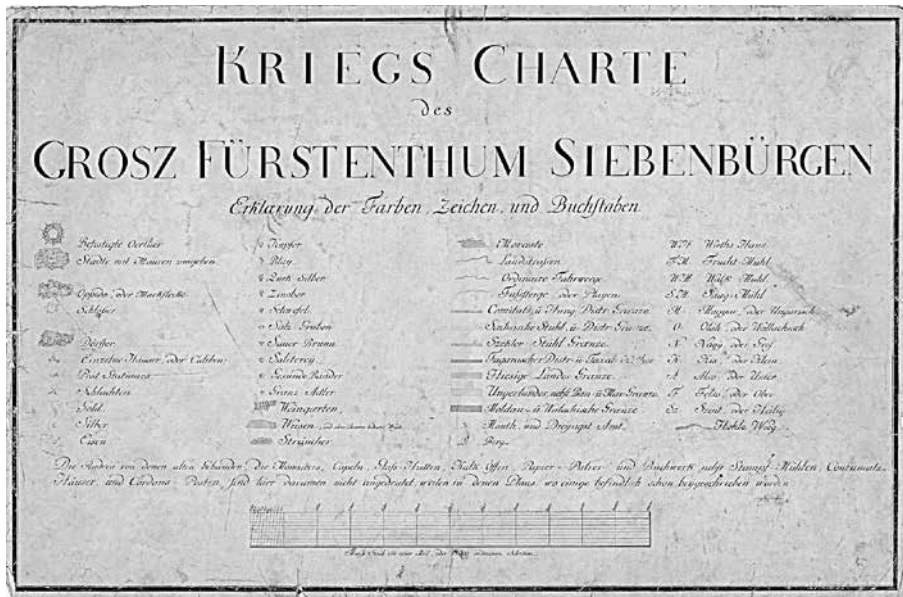 KRIEGS CHARTE
des
GROSZ FÜRSTENTHUM SIEBENBÜRGEN
Erklærung der Farben, Zeichen, und Buchstaben
Befestigte Oerther
Städte mit Mauren umgeben
Oppida, oder Marktflecke
Schlösser
Dörffer
Einzelne Häuser, oder Caliben
Post Stationes
Schluchten
Gold
Silber
Eisen
Kupfer
Bley
Queck Silber
Zinober
Schwefel
Saltz Gruben
Sauer Brunn
Saliterey
Gesunde Bäader
Granz Adler
Weingarten
Wiesen
Sträucher
Moraste
Landstrassen
Ordinaire Fahrweege
Fußsteege oder Plagen
Comitats u Hung. Distr. Granze
Sachsische Stuhl, u. Distr. Granze
Szekler Stuhl Granze
Fagarascher Distr. u.
Hiesige Landes Granze
Moldau u Walachische Granze
Mauth, und Dreysigst Amt
Berg
W.H. Wirths Haus
F.M. Frucht Mühl
W.M. Walk Mühl
S.M. Saag Mühl
M. Magyar, oder Ungarisch
O. Olah, oder Wallachisch
N. Nagy, oder Groß
K. Kis, oder Klein
A. Also, oder Unter
F. Felso, oder Ober
Sz. Szent, oder Heilig
Hohle Weeg
Die Ruderen von denen alten Gebäuden, die Monasteria, Capeln, Glass-Hütten, Kalk Offen, Papier- Pulver- und Buchwerk nebst Stampf-Mühlen, Contumatz-
Häuser, und Cordons Posten, seind hier darumen nicht angedeutet, weilen in denen Plans, wo einige befindlich schon beygeschrieben worden